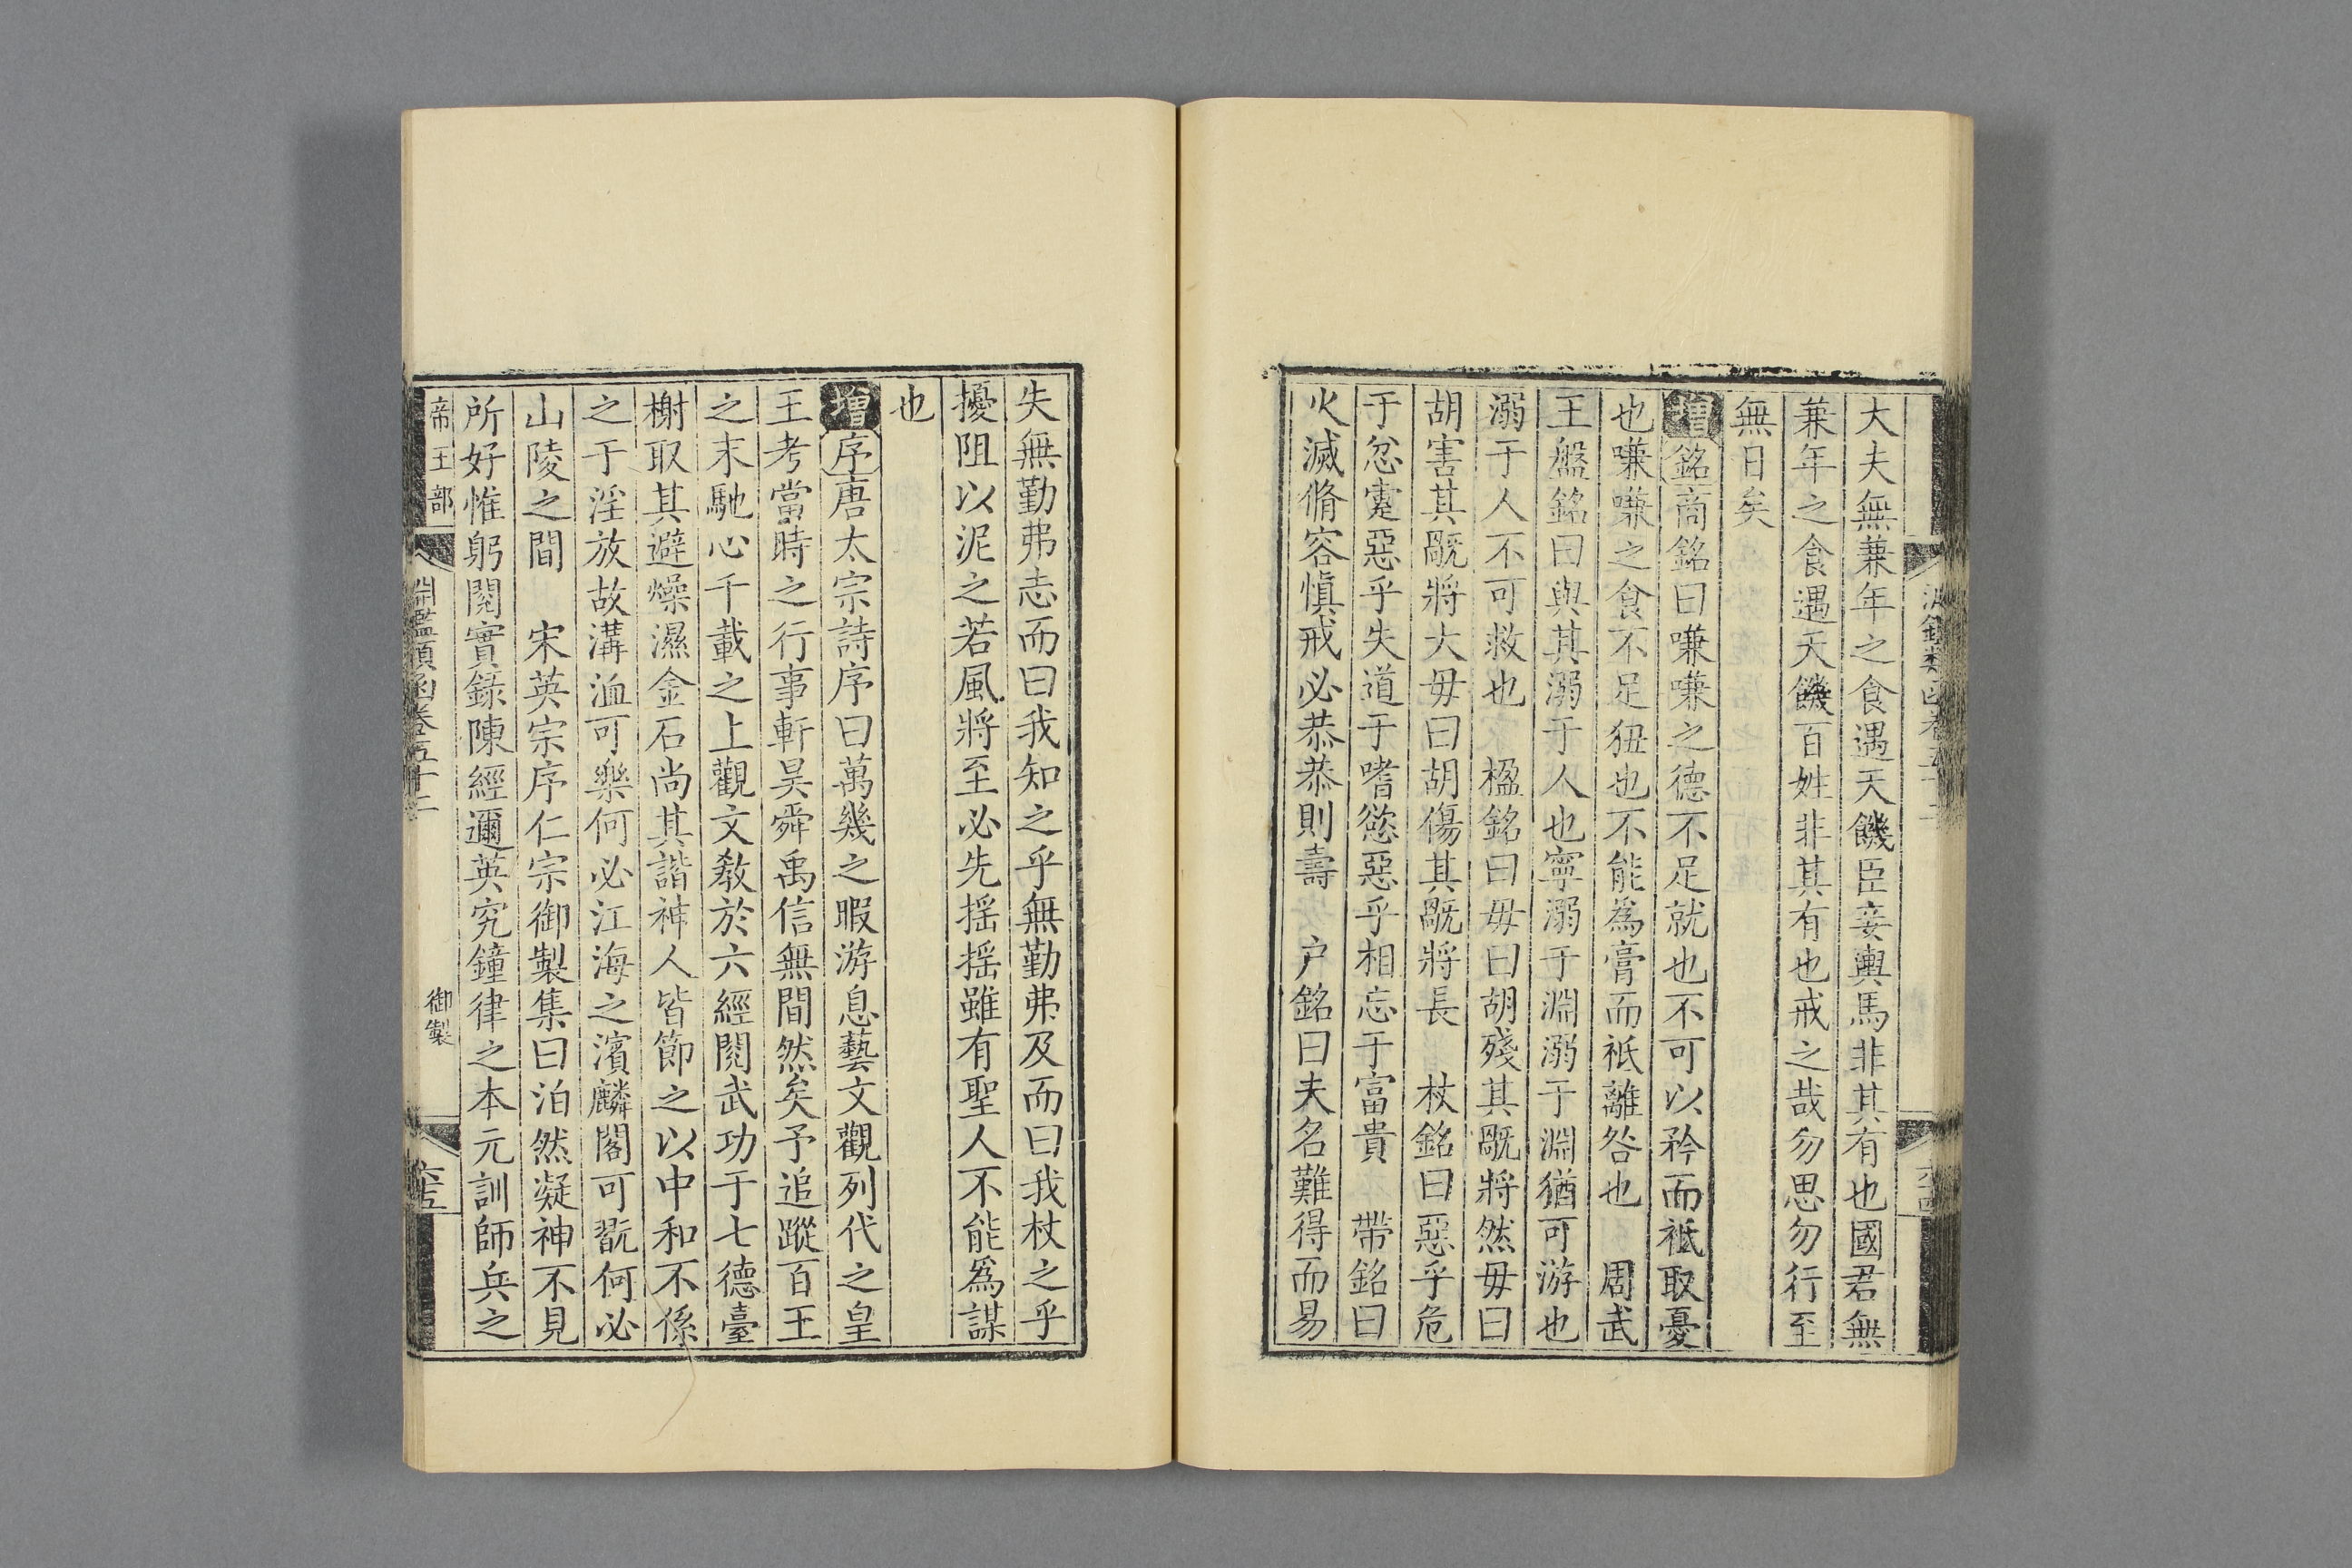 大夫無兼年之食遇天饑臣妾輿馬非其有也國君無
兼年之食遇天饑百姓非其有也戒之哉勿思勿行至
無日矣
增銘商銘曰嗛嗛之德不足就也不可以矜而袛取憂
也嗛嗛之食不足狃也不能為膏而袛離咎也 周武
王盤銘曰與其溺于人也寧溺于淵溺于淵猶可游也
溺于人不可救也 楹銘曰毋曰胡殘其𣄃將然毋曰
胡害其𣄃將大毋曰胡傷其𣄃將長 杖銘曰惡乎危
于忿疐惡乎失道于嗜慾惡乎相忘于富貴 帶銘曰
火滅脩容慎戒必恭恭則壽 户銘曰夫名難得而易
失無勤弗志而曰我知之乎無勤弗及而曰我杖之乎
擾阻以泥之若風將至必先摇摇雖有聖人不能為謀
也
增序唐太宗詩序曰萬幾之暇游息藝文觀列代之皇
王考當時之行事軒昊舜禹信無間然矣予追蹤百王
之末馳心千載之上觀文敎於六經閱武功于七德臺
榭取其避燥濕金石尚其諧神人皆節之以中和不係
之于淫放故溝洫可樂何必江海之濱麟閣可翫何必
山陵之間 宋英宗序仁宗御製集曰泊然凝神不見
所好惟躬閱實錄陳經邇英究鐘律之本元訓師兵之
帝王部 淵鑑類函卷五十二 御製 六十五